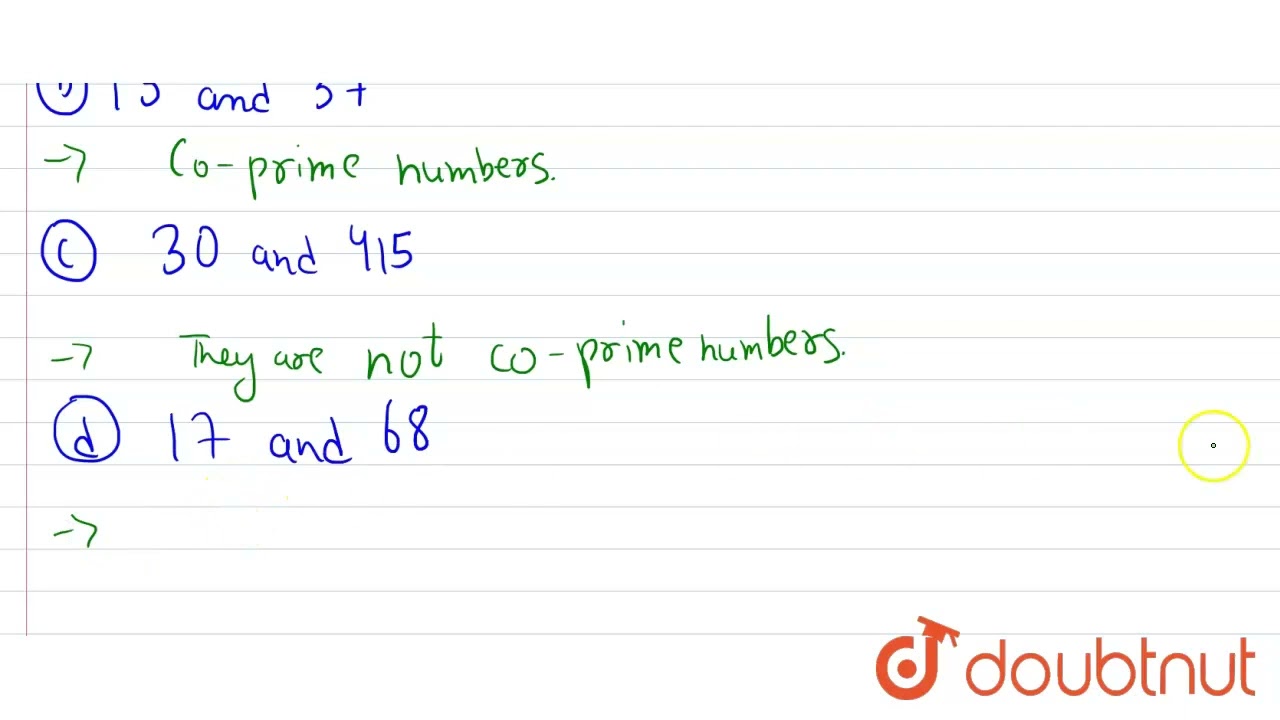 and
→ Co-prime numbers.
(c) 30 and 415
→ They are not co-prime numbers.
(d) 17 and 68
→
doubtnut